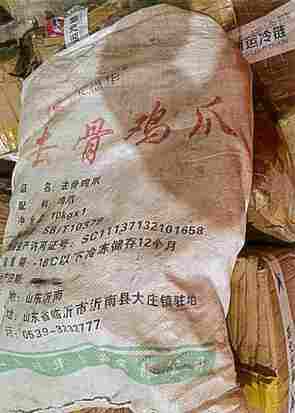 运冷链
去骨鸡爪
品 名: 去骨鸡爪
配 料: 鸡爪
10kg×1
SB/T10379
生产许可证号: SC11137132101658
-18℃以下冷冻储存12个月
地: 山东沂南
址: 山东省临沂市沂南县大庄镇驻地
0539-3232777